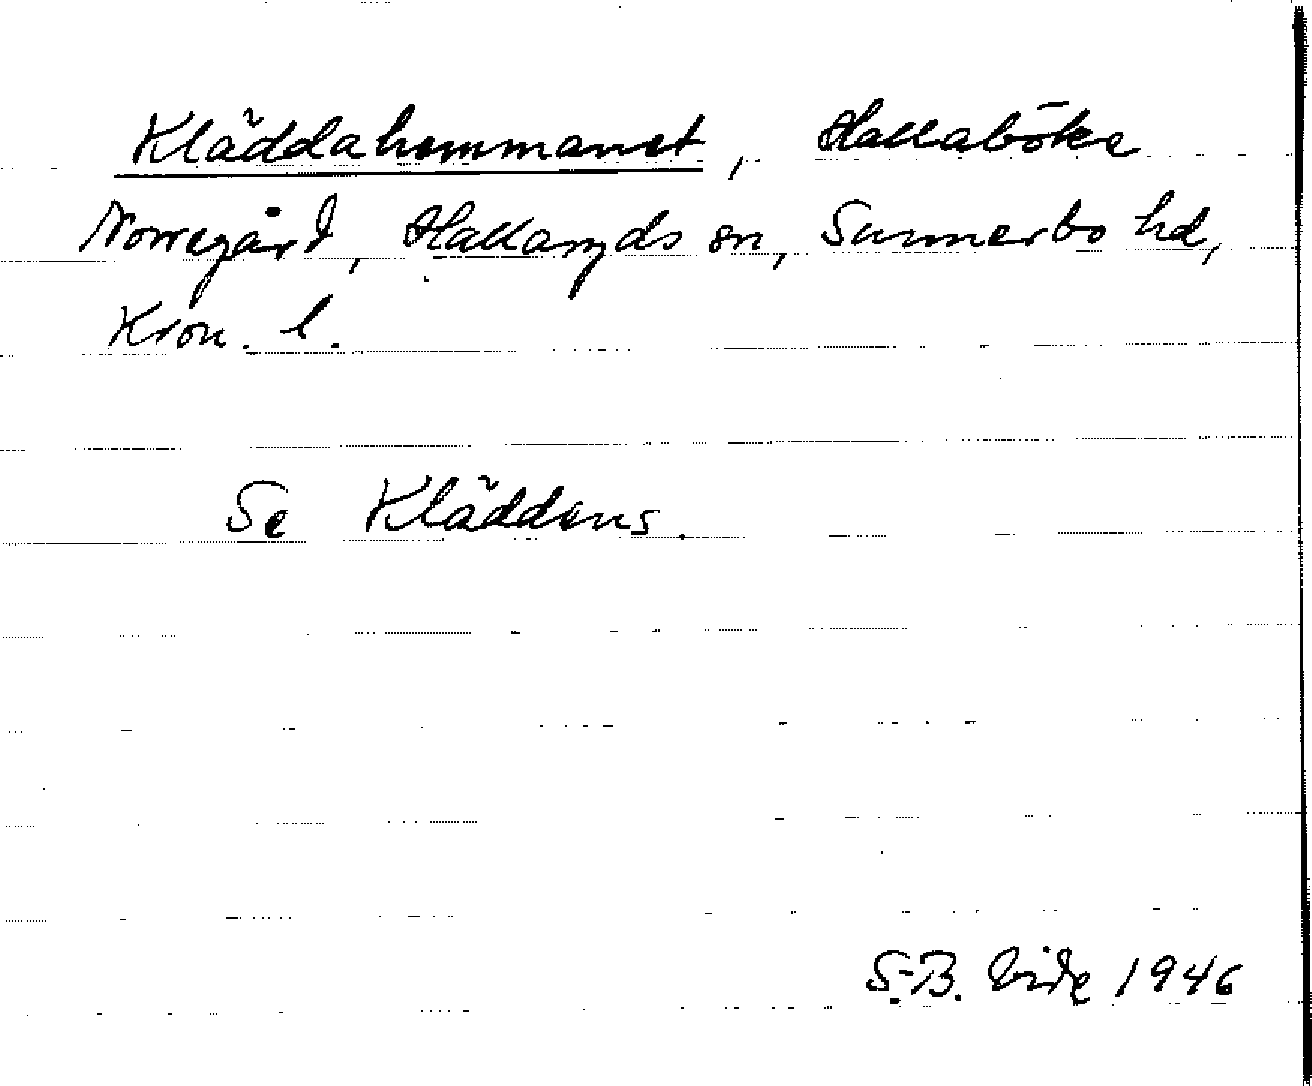 Kläddahemmanet, Hallaböke
Norregård, Hallaryds sn, Sunnerbo hd,
Kron. l.
Se Kläddens.
S.-B. Vide 1946